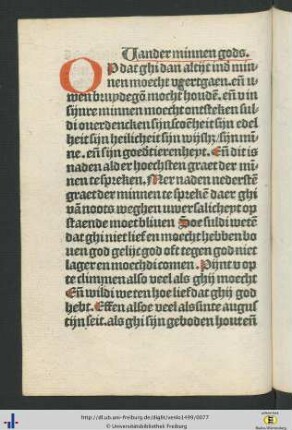 Vander minnen gods.
OP dat ghi dan altijt ind min-
nen moecht vgertgaen. eñ u
wen bruydegõ mocht houdẽ. eñ v in
sijnre minnen moecht ontsteken sul-
di ouerdencken sijn scoẽheit sijn edel
heit sijn heilicheit sijn wijsh; sijn mĩ-
ne. eñ sijn goedtierenheyt. Eñ dit is
naden alder hoechsten graet der mĩ
nen te sprekẽ. Mer naden nederstẽ
graet der minnen te sprekẽ daer ghi
van noots weghen uwer salicheyt op
staende moet bliuen Soe suldi wetẽ
dat ghi niet lief en moecht hebben bo
uen god gelijc god oft tegen god niet
lager en moechdi comen. Pijnt v op
te climmen also veel als ghij moecht
Eñ wildi weten hoe lief dat ghij god
hebt. Effen alsoe veel als sinte augus
tijn seit. als ghi sijn geboden hout eñ
http://dl.ub.uni-freiburg.de/diglit/venlo1499/0077
© Universitätsbibliothek Freiburg